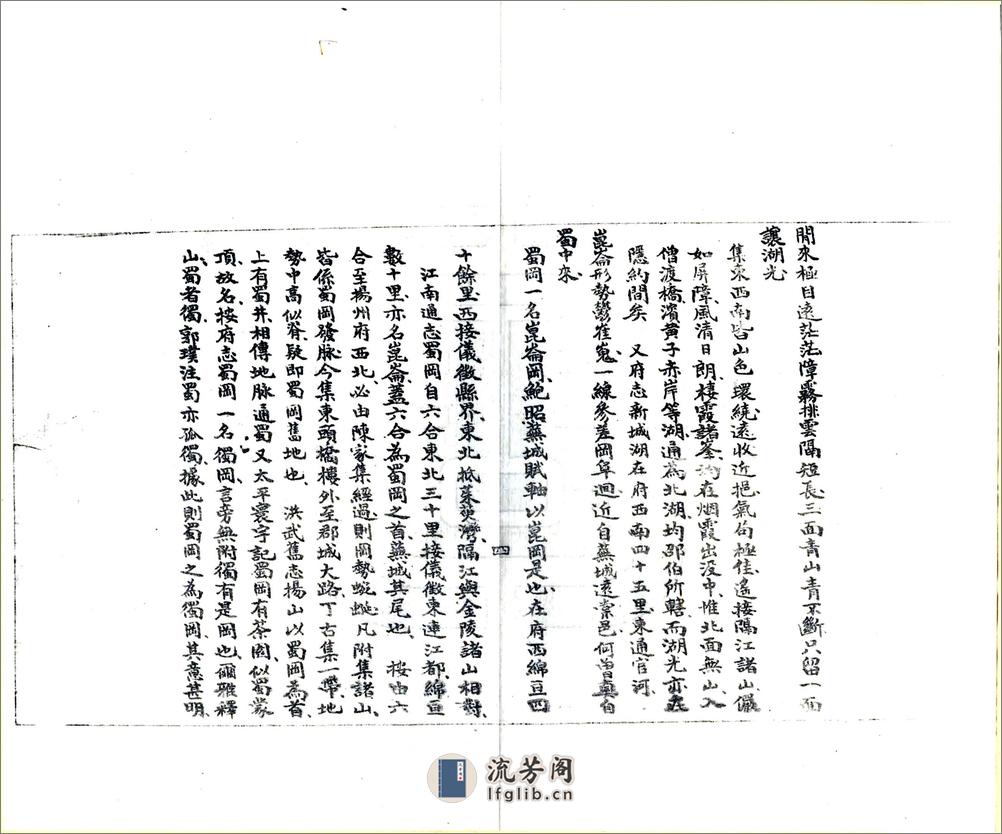 閒來極目遠茫茫障霧排雲隔短長三面青山青不斷只留一面
讓湖光
集東西南皆山色環繞遠收近挹氣句極佳遙接隔江諸山儼
如屏障風清日朗棲霞諸峯均在烟霞出没中惟北面無山入
僧渡橋濱黄子赤岸等湖通為北湖均邵伯所轄而湖光亦在
隱約間矣 又府志新城湖在府西南四十五里東通官河
崑崙形勢鬱崔嵬一線參差岡阜迴近自蕪城遠棠邑何曾真自
蜀中來
蜀岡一名崑崙岡鮑昭蕪城賦軸以崑岡是也在府西綿亘四
十餘里西接儀徵縣界東北抵茱萸灣隔江與金陵諸山相對
江南通志蜀岡自六合東北三十里接儀徵東連江都綿亘
數十里亦名崑崙蓋六合為蜀岡之首蕪城其尾也 按由六
合至揚州府西北必由陳家集經過則岡勢蜿蜒凡附集諸山
皆係蜀岡發脉今集東頭橋樓外至郡城大路丁古集一帶地
勢中高似脊疑即蜀岡舊地也 洪武舊志揚山以蜀岡為首
上有蜀井相傳地脉通蜀又太平寰宇記蜀岡有茶園似蜀蒙
頂故名按府志蜀岡一名獨岡言旁無附獨有是岡也爾雅釋
山蜀者獨郭璞注蜀亦孤獨據此則蜀岡之為獨岡其意甚明
流芳阁
lfglib.cn